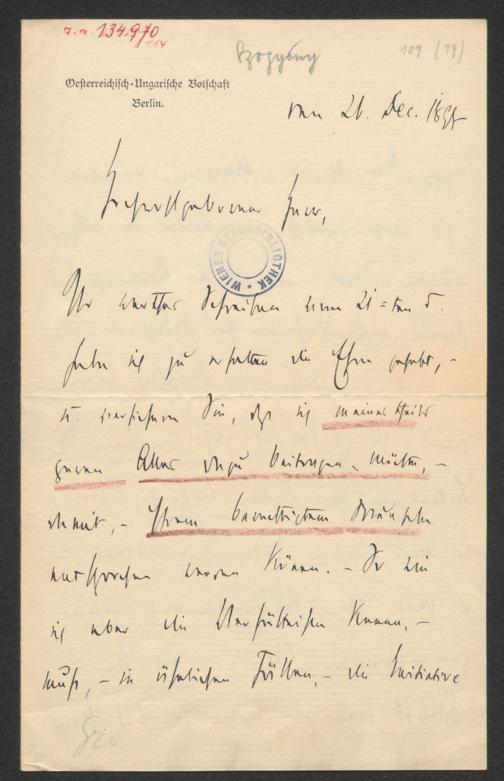 J.N. 134.970
114
109 (19)
Szögyény
Oesterreichisch-Ungarische Botschaft
Berlin.
26. Dec. 189
Hochwohlgeborener Herr,
WIENER STADTBIBLIOTHEK
Ihr werthes Schreiben vom 21=ten d.
habe ich zu erhalten die Ehre gehabt, –
u versichere Sie, dß ich meinerseits
gerne Alles dazu beitragen möchte, –
damit, – Ihrem berechtigten Wunsche
entsprochen werden könne. – So wie
ich aber die Verhältnisse kenne, –
muß, – in ähnlichen Fällen, – die Initiative